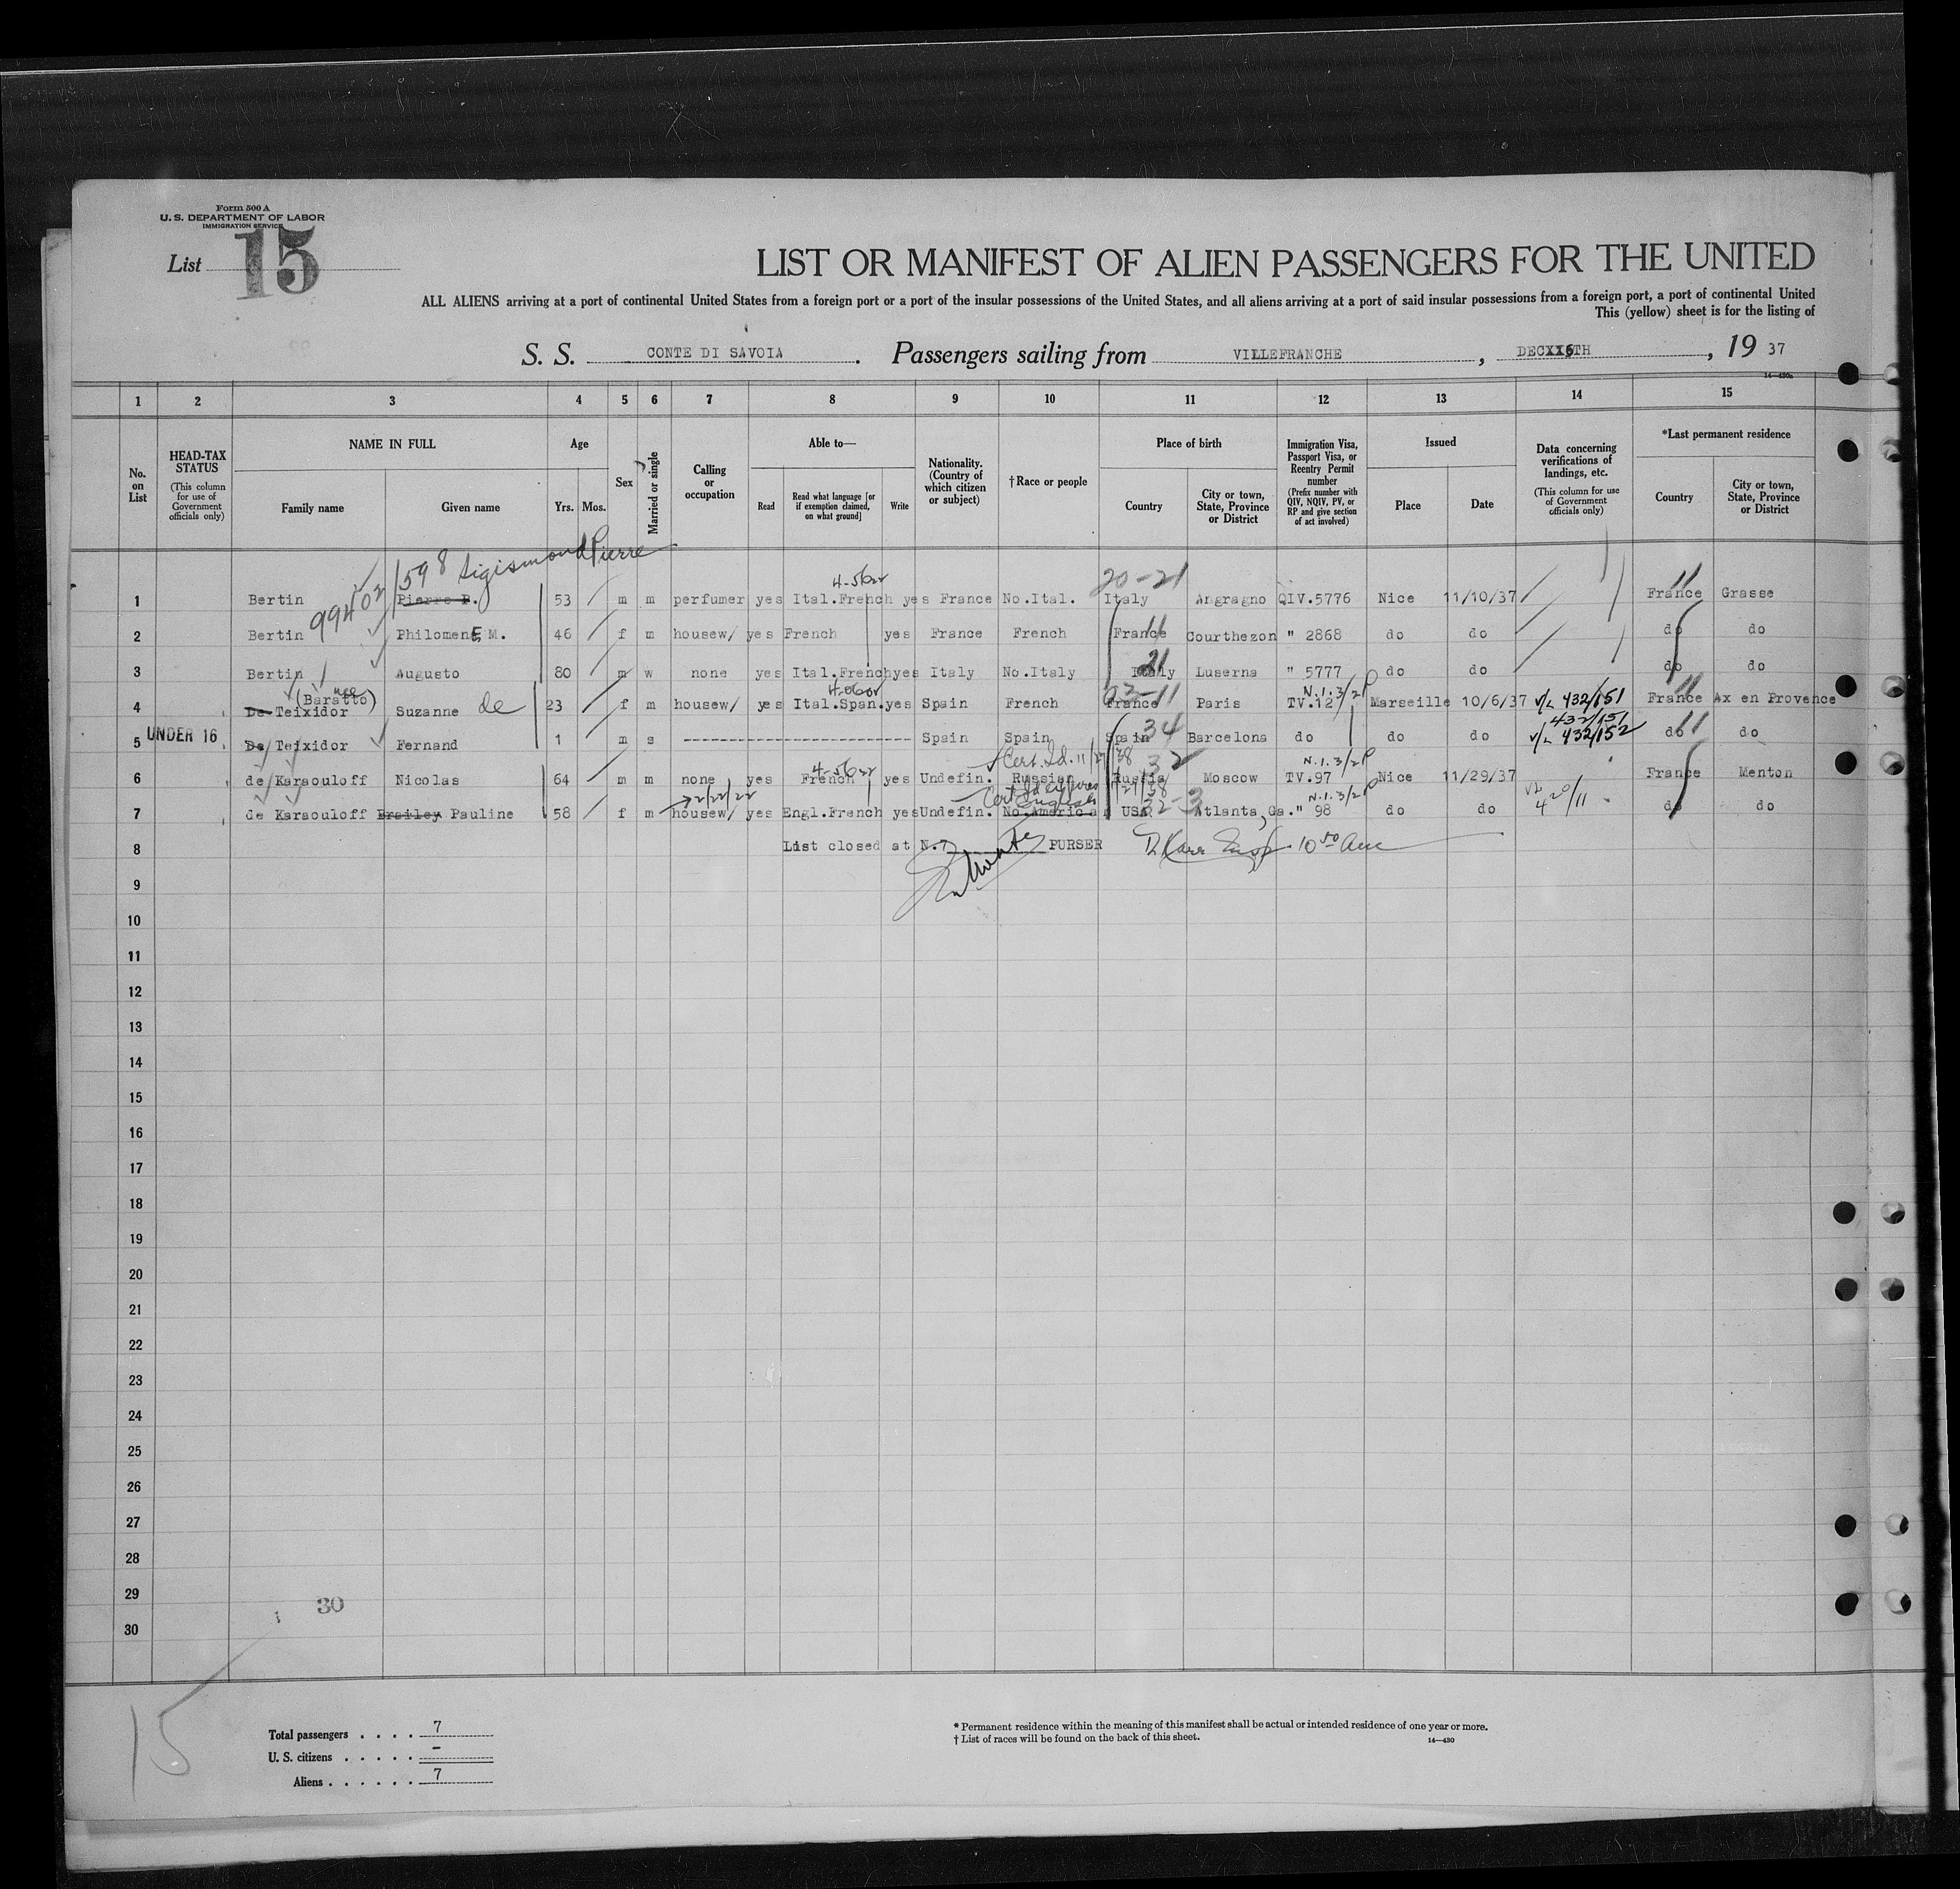 Form 500 A
U. S. DEPARTMENT OF LABOR
IMMIGRATION SERVICE
List 15
LIST OR MANIFEST OF ALIEN PASSENGERS FOR THE UNITED
ALL ALIENS arriving at a port of continental United States from a foreign port or a port of the insular possessions of the United States, and all aliens arriving at a port of said insular possessions from a foreign port, a port of continental United
This (yellow) sheet is for the listing of
S. S. CONTE DI SAVOIA. Passengers sailing from VILLEFRANCHE, DECXX6TH, 19 37
14—430a
1 2 3 4 5 6 7 8 9 10 11 12 13 14 15
No. on List
HEAD-TAX STATUS
(This column for use of Government officials only)
NAME IN FULL
Family name Given name
Age
Yrs. Mos.
Sex
Married or single
Calling or occupation
Able to—
Read Read what language [or if exemption claimed, on what ground] Write
Nationality. (Country of which citizen or subject)
†Race or people
Place of birth
Country City or town, State, Province or District
Immigration Visa, Passport Visa, or Reentry Permit number
(Prefix number with QIV, NQIV, PV, or RP and give section of act involved)
Issued
Place Date
Data concerning verifications of landings, etc.
(This column for use of Government officials only)
*Last permanent residence
Country City or town, State, Province or District
598 Sigismond Pierre
99402
20-21
1 Bertin Pierre P. 53 m m perfumer yes Ital.French yes France No.Ital. Italy Angragno QIV.5776 Nice 11/10/37 France 11 Grasse
2 Bertin Philomene M. 46 f m housew/ yes French yes France French France 11 Courthezon " 2868 do do do do
3 Bertin Augusto 80 m w none yes Ital.French yes Italy No.Italy Italy 21 Luserna " 5777 do do do do
(Baratto) nee
N.1.3/2P
4 De Teixidor Suzanne de 23 f m housew/ yes Ital.Span. yes Spain French France Paris TV.127 Marseille 10/6/37 V/L 432/151 France 11 Ax en Provence
432/151
5 UNDER 16 De Teixidor Fernand 1 m s Spain Spain Spain 34 Barcelona do do do V/L 432/152 do 11 do
N.1.3/2P
6 de Karaouloff Nicolas 64 m m none yes French yes Undefin. Russian Russia 32 Moscow TV.97 Nice 11/29/37 France Menton
English
N.1.3/2P
420/11
7 de Karaouloff Brailey Pauline 58 f m housew/ yes Engl.French yes Undefin. No.American USA Atlanta, Ga. " 98 do do do do
8 List closed at N.7 PURSER
9
10
11
12
13
14
15
16
17
18
19
20
21
22
23
24
25
26
27
28
29
30
30
15
Total passengers . . . . 7
U. S. citizens . . . . . -
Aliens . . . . . . 7
* Permanent residence within the meaning of this manifest shall be actual or intended residence of one year or more.
† List of races will be found on the back of this sheet.
14—430